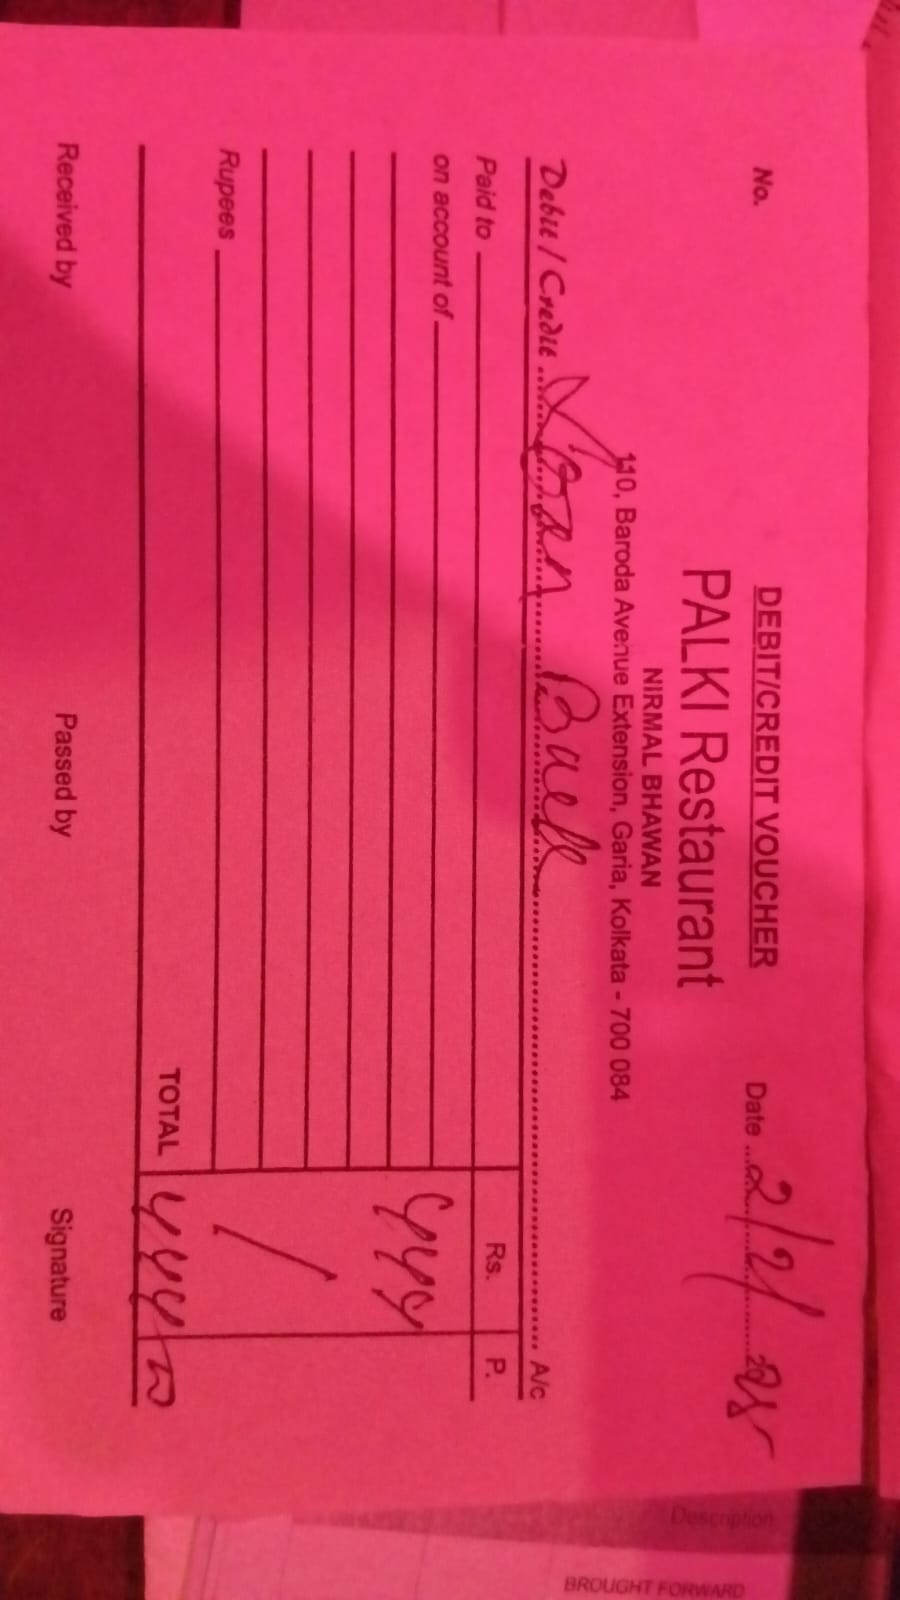 DEBIT/CREDIT VOUCHER
No.
Date 2/2/2025
PALKI Restaurant
NIRMAL BHAWAN
110, Baroda Avenue Extension, Garia, Kolkata - 700 084
Debit / Credit Loan Back A/c
Paid to Rs. P.
on account of
Rupees
TOTAL
Received by Passed by Signature
Description
BROUGHT FORWARD